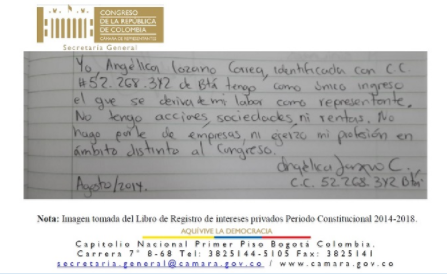 CONGRESO
DE LA REPÚBLICA
DE COLOMBIA
CÁMARA DE REPRESENTANTES
Secretaría General
Yo Angélica Lozano Correa, identificada con C.C.
#52.268.342 de Btá tengo como único ingreso
el que se deriva de mi labor como representante.
No tengo acciones, sociedades, ni rentas. No
hago parte de empresas, ni ejerzo mi profesión en
ámbito distinto al Congreso.
Angélica Lozano C.
Agosto/2014. C.C. 52.268.342 Btá
Nota: Imagen tomada del Libro de Registro de intereses privados Periodo Constitucional 2014-2018.
AQUÍVIVE LA DEMOCRACIA
Capitolio Nacional Primer Piso Bogotá Colombia.
Carrera 7° 8-68 Tel: 3825144-5105 Fax: 3825141
secretaria.general@camara.gov.co / www.camara.gov.co